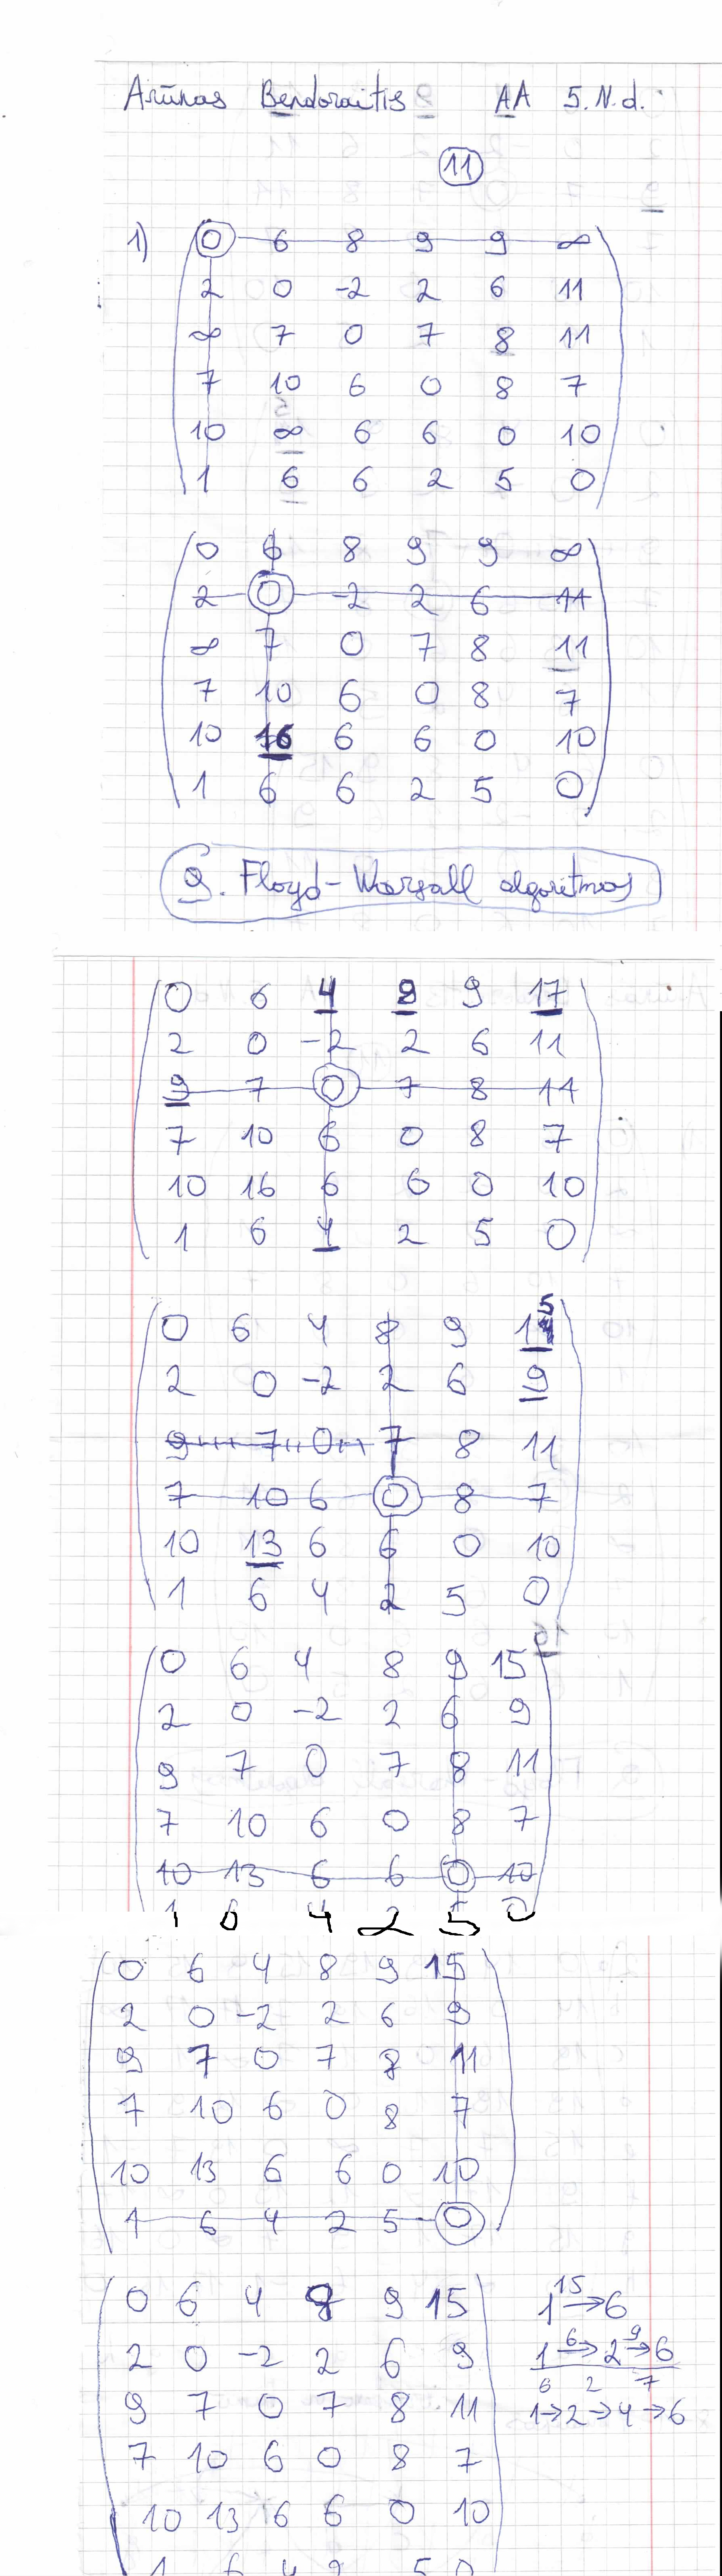 Arūnas Bendoraitis AA 5. N.d.
11
1)
0 6 8 9 9 ∞
2 0 -2 2 6 11
∞ 7 0 7 8 11
7 10 6 0 8 7
10 ∞ 6 6 0 10
1 6 6 2 5 0
0 6 8 9 9 ∞
2 0 -2 2 6 11
∞ 7 0 7 8 11
7 10 6 0 8 7
10 16 6 6 0 10
1 6 6 2 5 0
9. Floyd-Warşall algoritmas
0 6 4 8 9 17
2 0 -2 2 6 11
9 7 0 7 8 11
7 10 6 0 8 7
10 16 6 6 0 10
1 6 4 2 5 0
0 6 4 8 9 15
2 0 -2 2 6 9
9 7 0 7 8 11
7 10 6 0 8 7
10 13 6 6 0 10
1 6 4 2 5 0
0 6 4 8 9 15
2 0 -2 2 6 9
9 7 0 7 8 11
7 10 6 0 8 7
10 13 6 6 0 10
1 6 4 2 5 0
0 6 4 8 9 15
2 0 -2 2 6 9
9 7 0 7 8 11
7 10 6 0 8 7
10 13 6 6 0 10
1 6 4 2 5 0
0 6 4 8 9 15
2 0 -2 2 6 9
9 7 0 7 8 11
7 10 6 0 8 7
10 13 6 6 0 10
1 6 4 2 5 0
15
1→6
6 9
1→2→6
6 2 7
1→2→4→6